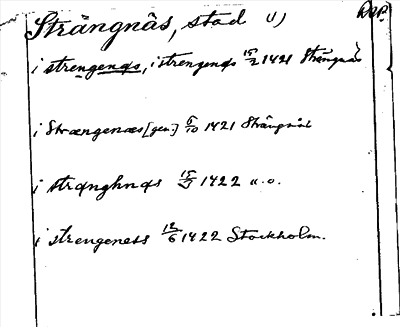 Strängnäs, stad U) DSP.
i strengenqs, i strengenqs 15/2 1421 Strängnäs
i Strængenæs [gen.] 5/10 1421 Strängnäs
i strqnghnqs 15/5 1422 u. o.
i strengeness 12/6 1422 Stockholm.